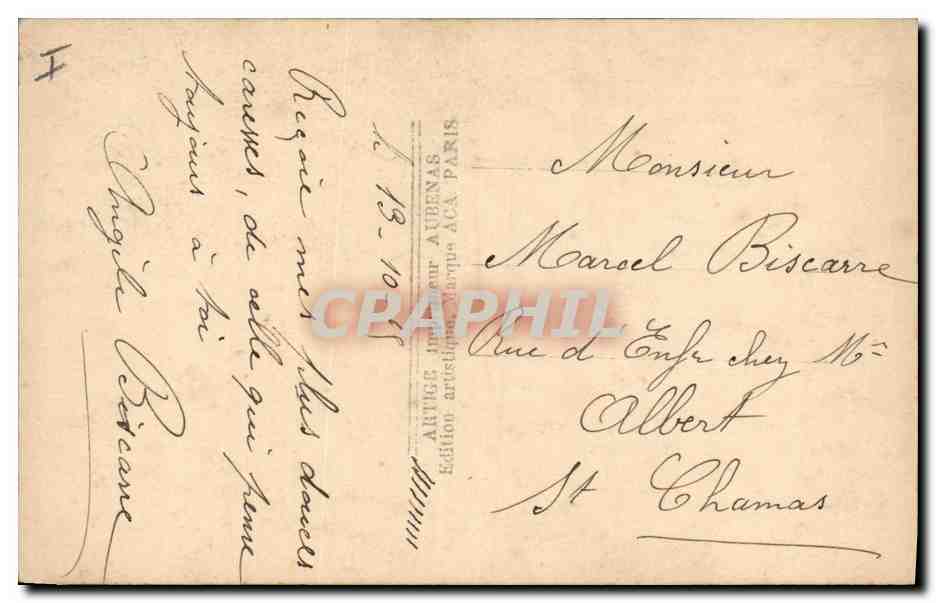 H
Le 13-10-15
Reçoie mes plus douces
caresses, de celle qui pense
toujours à toi
Angèle Biscarre
ARTIGE imprimeur AUBENAS
Edition artistique, Marque ACA PARIS
Monsieur
Marcel Biscarre
Rue d'Enfr chez Mr
Albert
St Chamas
CPARAMA